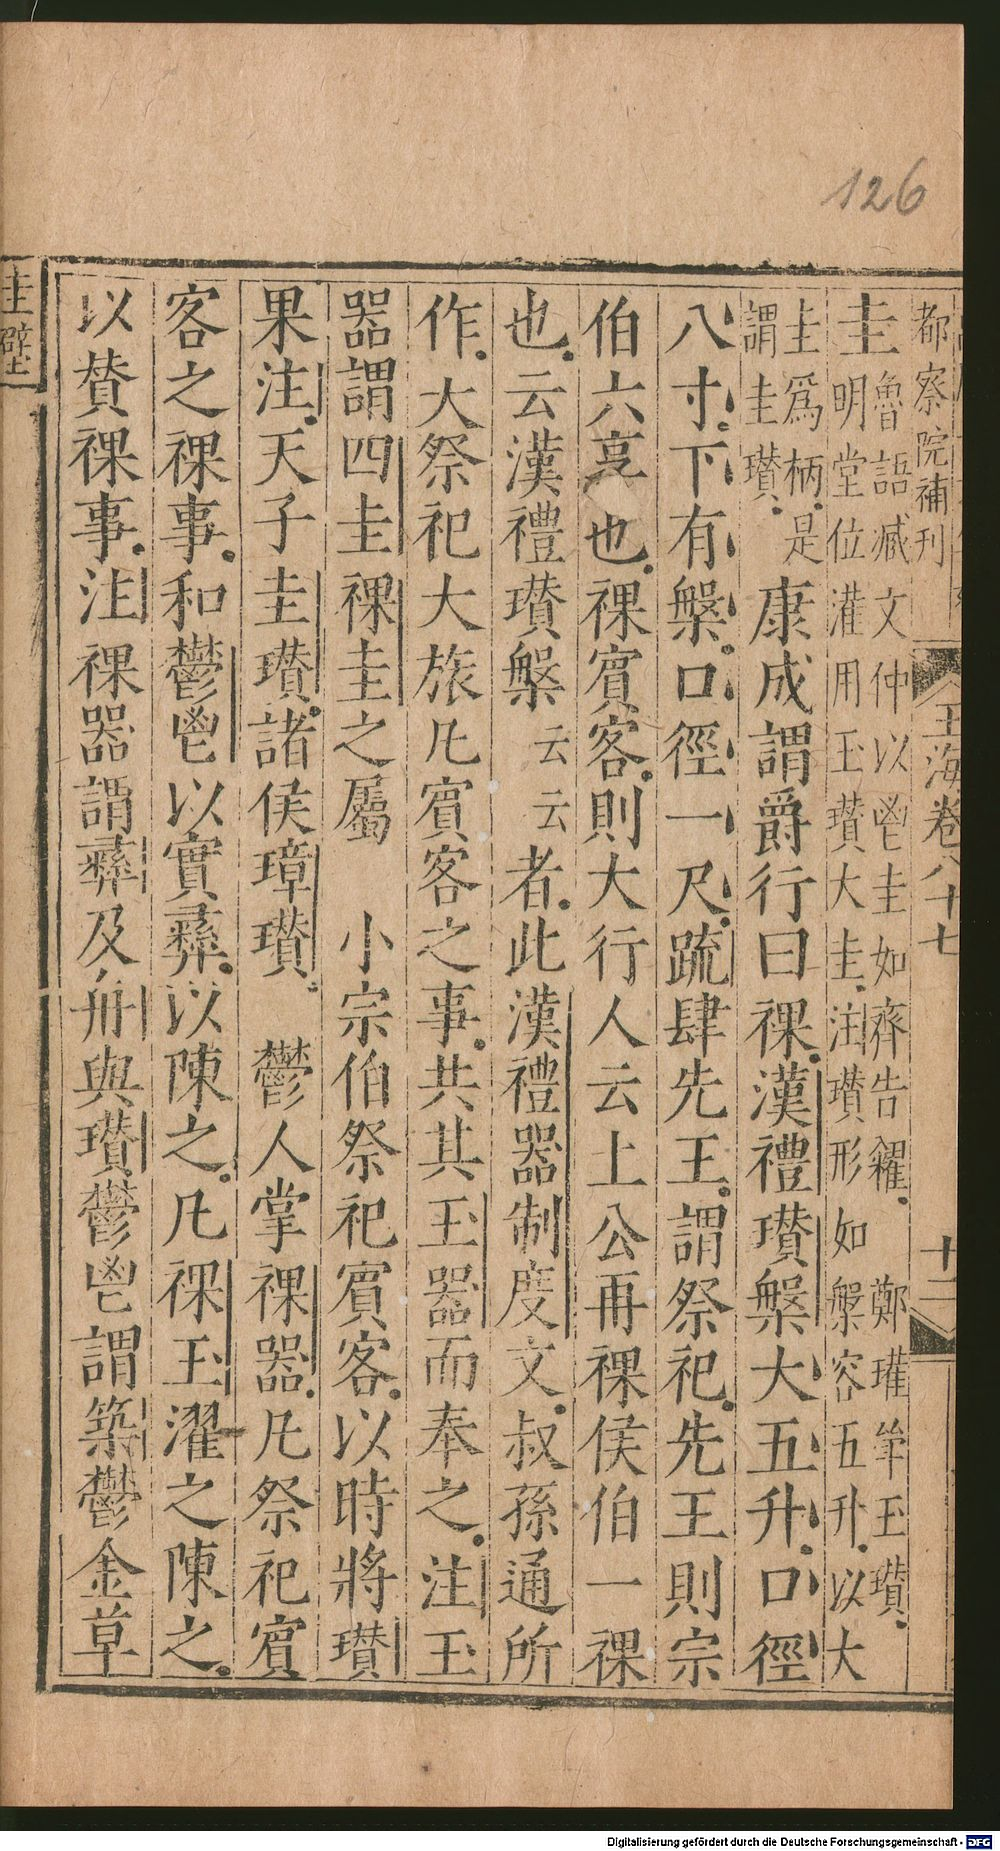 126
都察院補刊
玉海卷八十七
十二
圭魯語臧文仲以鬯圭如齊告糴鄭瓘斝玉瓚
明堂位灌用玉瓚大圭注瓚形如槃容五升以大
圭爲柄是
謂圭瓚康成謂爵行曰祼漢禮瓚槃大五升口徑
八寸下有槃口徑一尺疏肆先王謂祭祀先王則宗
伯六享也祼賓客則大行人云上公再祼侯伯一祼
也云漢禮瓚槃云云者此漢禮器制度文叔孫通所
作大祭祀大旅凡賓客之事共其玉器而奉之注玉
器謂四圭祼圭之屬　小宗伯祭祀賓客以時將瓚
果注天子圭瓚諸侯璋瓚　鬱人掌祼器凡祭祀賓
客之祼事和鬱鬯以實彞以陳之凡祼玉濯之陳之
以贊祼事注祼器謂彞及舟與瓚鬱鬯謂築鬱金草
圭璧
Digitalisierung gefördert durch die Deutsche Forschungsgemeinschaft - DFG